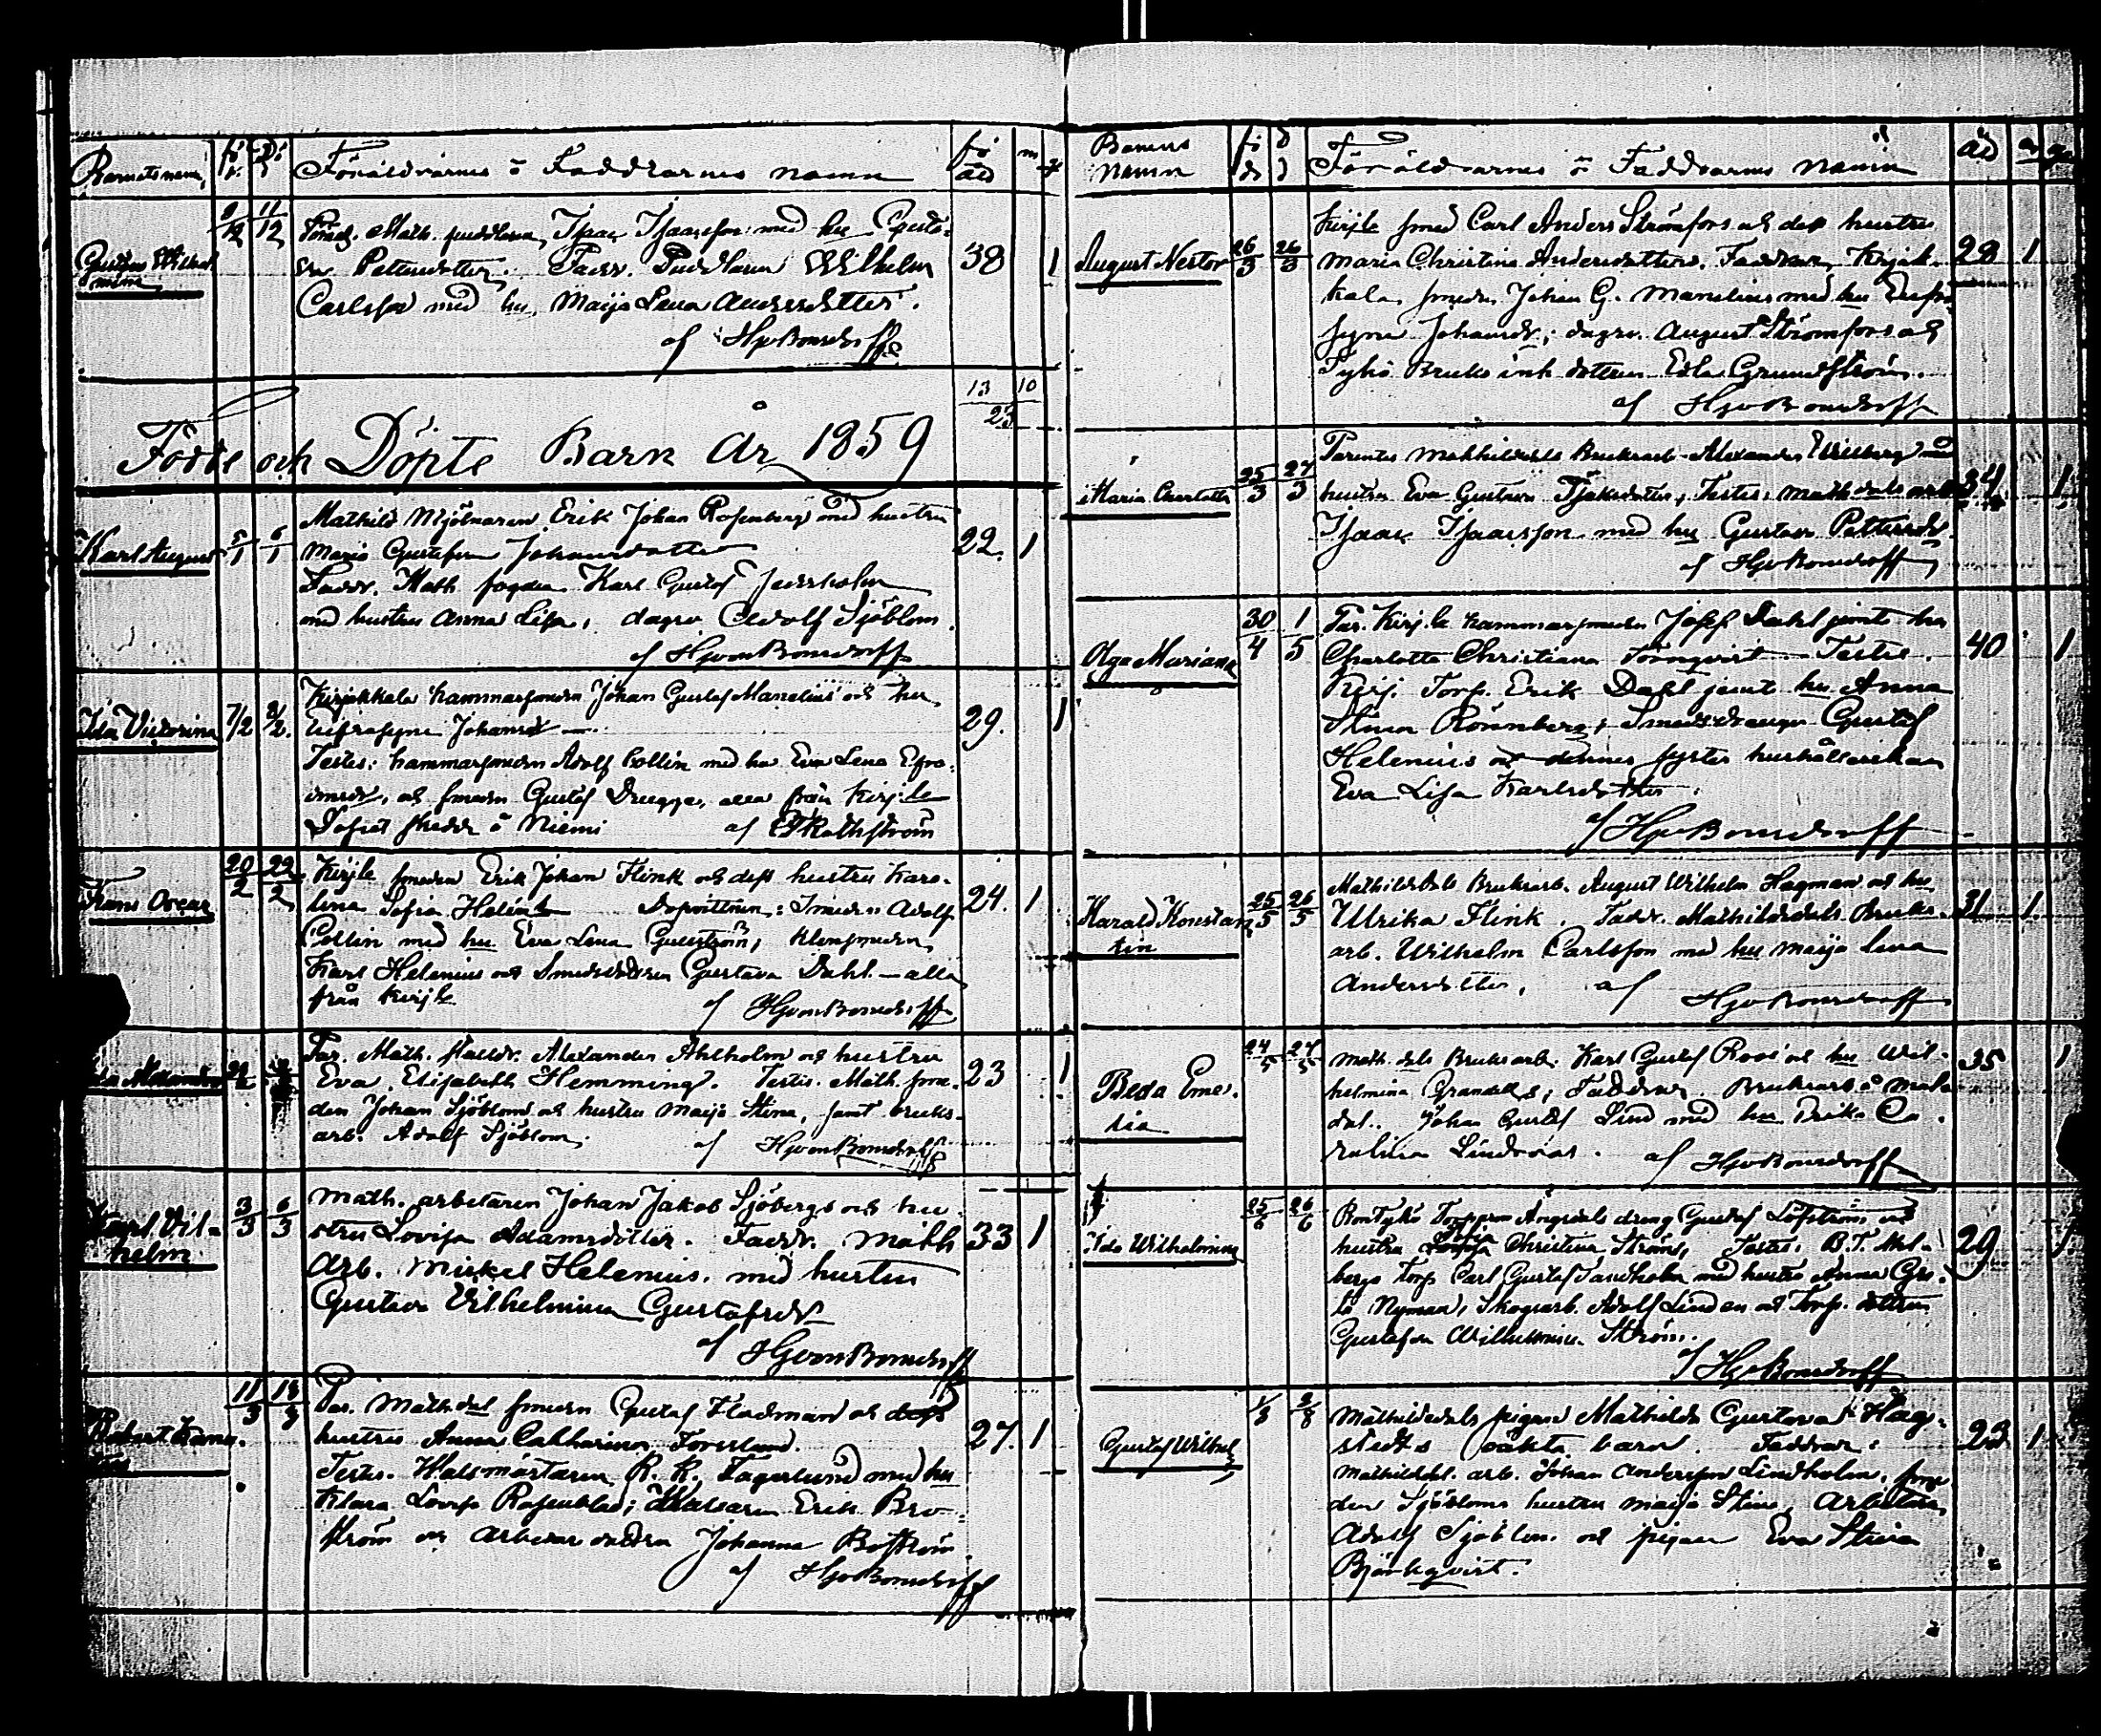 Barnets namn fö d Föräldrarnes o Faddrarnes namn fö åld m q
Gustava Wilhelmina 9/12 11/12
Föräld. Math. puddlaren Isaac Isaacsson med hu Gusta-
va Pettersdotter. Faddr. Puddlaren Wilhelm 38 1
Carlsson med hu Maija Lena Andersdotter.
af HGvBonsdorff
13 10
23
Födde och Döpte Barn År 1859
Karl August 5/1 6/1
Mathild Mjölnaren Erik Johan Rosenberg med hustru
Maria Gustafva Johansdotter 22. 1
Faddr. Math fogden Karl Gustaf
med hustru Anna Lisa, dagsv Adolf Sjöblom.
af HGvonBonsdorff
Ida Victorina 7/2 8/2.
Kirjakkala hammarsmeden Johan Gustaf Manelius och hu
Eufrosyne Johansd 29. 1
Testes: hammarsmeden Adolf Collin med hu Eva Lena Efra-
imsdr, och smeden Gustaf Drugge, alla från Kirjla
Dopet skedde å Niemi af Rothström
Frans Oscar 20/2 22/2
Kirjla smeden Erik Johan Flink och dess hustru Karo-
lina Sofia Dopvittnen: Smeden Adolf 24. 1
Collin med hu Eva Lena klensmeden
Karl Helenius och Smedsdottren Gustava Dahl. — alla
från Kirjla af HGvonBonsdorff
Par. Math. Alexander Ahlholm och hustru
Eva Elisabeth Hemming. Testes. Math. sme- 23 1
den Johan Sjöblom och hustru Maija Stina, samt bruks-
arb. Adolf Sjöblom. af HGvonBonsdorff
Karl Vil-
helm 3/3 6/3
Math. arbetaren Johan Jakob Sjöbergs och hu-
stru Lovisa Adamsdotter. Faddr. Math 33 1
Arb. Mickel Helenius med hustru
Gustava Vilhelmina Gustafsdr
af HGvonBonsdorff
Robert 11/3 13/3
Par. Mathdal smeden Gustaf Fladman och dess
hustru Anna Catharina Forslund. 27. 1
Testes. K. K. Fagerlund med hu
Klara Lovisa Rosenblad; Erik Bro-
ström och Johanna Boström
af HGvBonsdorff
Barnens namn fö d Föräldrarnes o Faddrarnes namn åld
August Nestor 26/3 26/3
Kirjla smed Carl Anders Strömfors och dess hustru
Maria Christina Andersdotter. Faddrar, Kirjak- 28 1
kala smeden Johan G. Manelius med hu Eufro-
syne Johansdr; dagsv. August Strömfors och
Tykö Bruks dottren Edla Grundström.
af HGvBonsdorff
Maria Charlotta 25/3 27/3
Parentes Mathildedals Bruksarb. Alexander och
hustru Eva Gustava Testes: Mathdals arb 34 1
Isaac Isaacsson med hu Gustava Pettersdr.
af HGvBonsdorff
Olga Mariana 30/4 1/5
Par. Kirjla hammarsmeden Josef Dahl jemte hu
Charlotta Christiana Törnqvist — Testes. 40 1
Kirj. Torp. Erik Dahl jemt hu Anna
Stina Rönnberg; Smedsdrängen Gustaf
Helenius och dennes syster hushållerskan
Eva Lisa Karlsdotter.
af HGvBonsdorff
Harald Konstan-
tin 25/5 26/5
Mathildedals Bruksarb. August Wilhelm Hagman och hu
Ulrika Flink. Faddr. Mathildedals Bruks- 31 1
arb. Wilhelm Carlsson med hu Maija Lena
Andersdotter. af HGvBonsdorff
Beda Eme-
lia 24/5 27/5
Math. dals Bruksarb. Karl Gustaf Roos och hu Wil- 35 1
helmina Faddrar. Bruksarb å Math-
dal. Johan Gustaf Lind med hu Ca-
rolina Lindroos. af HGvBonsdorff
Ida Wilhelmina 25/6 26/6
dräng Gustaf Löfström och
hustru Sofia Christina Ström, Testes. 29 1
bergs Torp Carl Gustaf Sandholm med hustru Anna
Nyman, Skogsarb. Adolf Linden och Torp. dottren
Gustafva Wilhelmina Ström.
af HGvBonsdorff
Gustaf Wilhel 1/8 2/8
Mathildedals pigan Mathilda Gustava Hag-
stedts oäkta barn. Faddrar: 23 1
Mathildedal. arb. Johan Andersson Lindholm, sme-
den Sjöbloms hustru Maija Stina, Arbetaren
Adolf Sjöblom och pigan Eva Stina
Björkqvist.